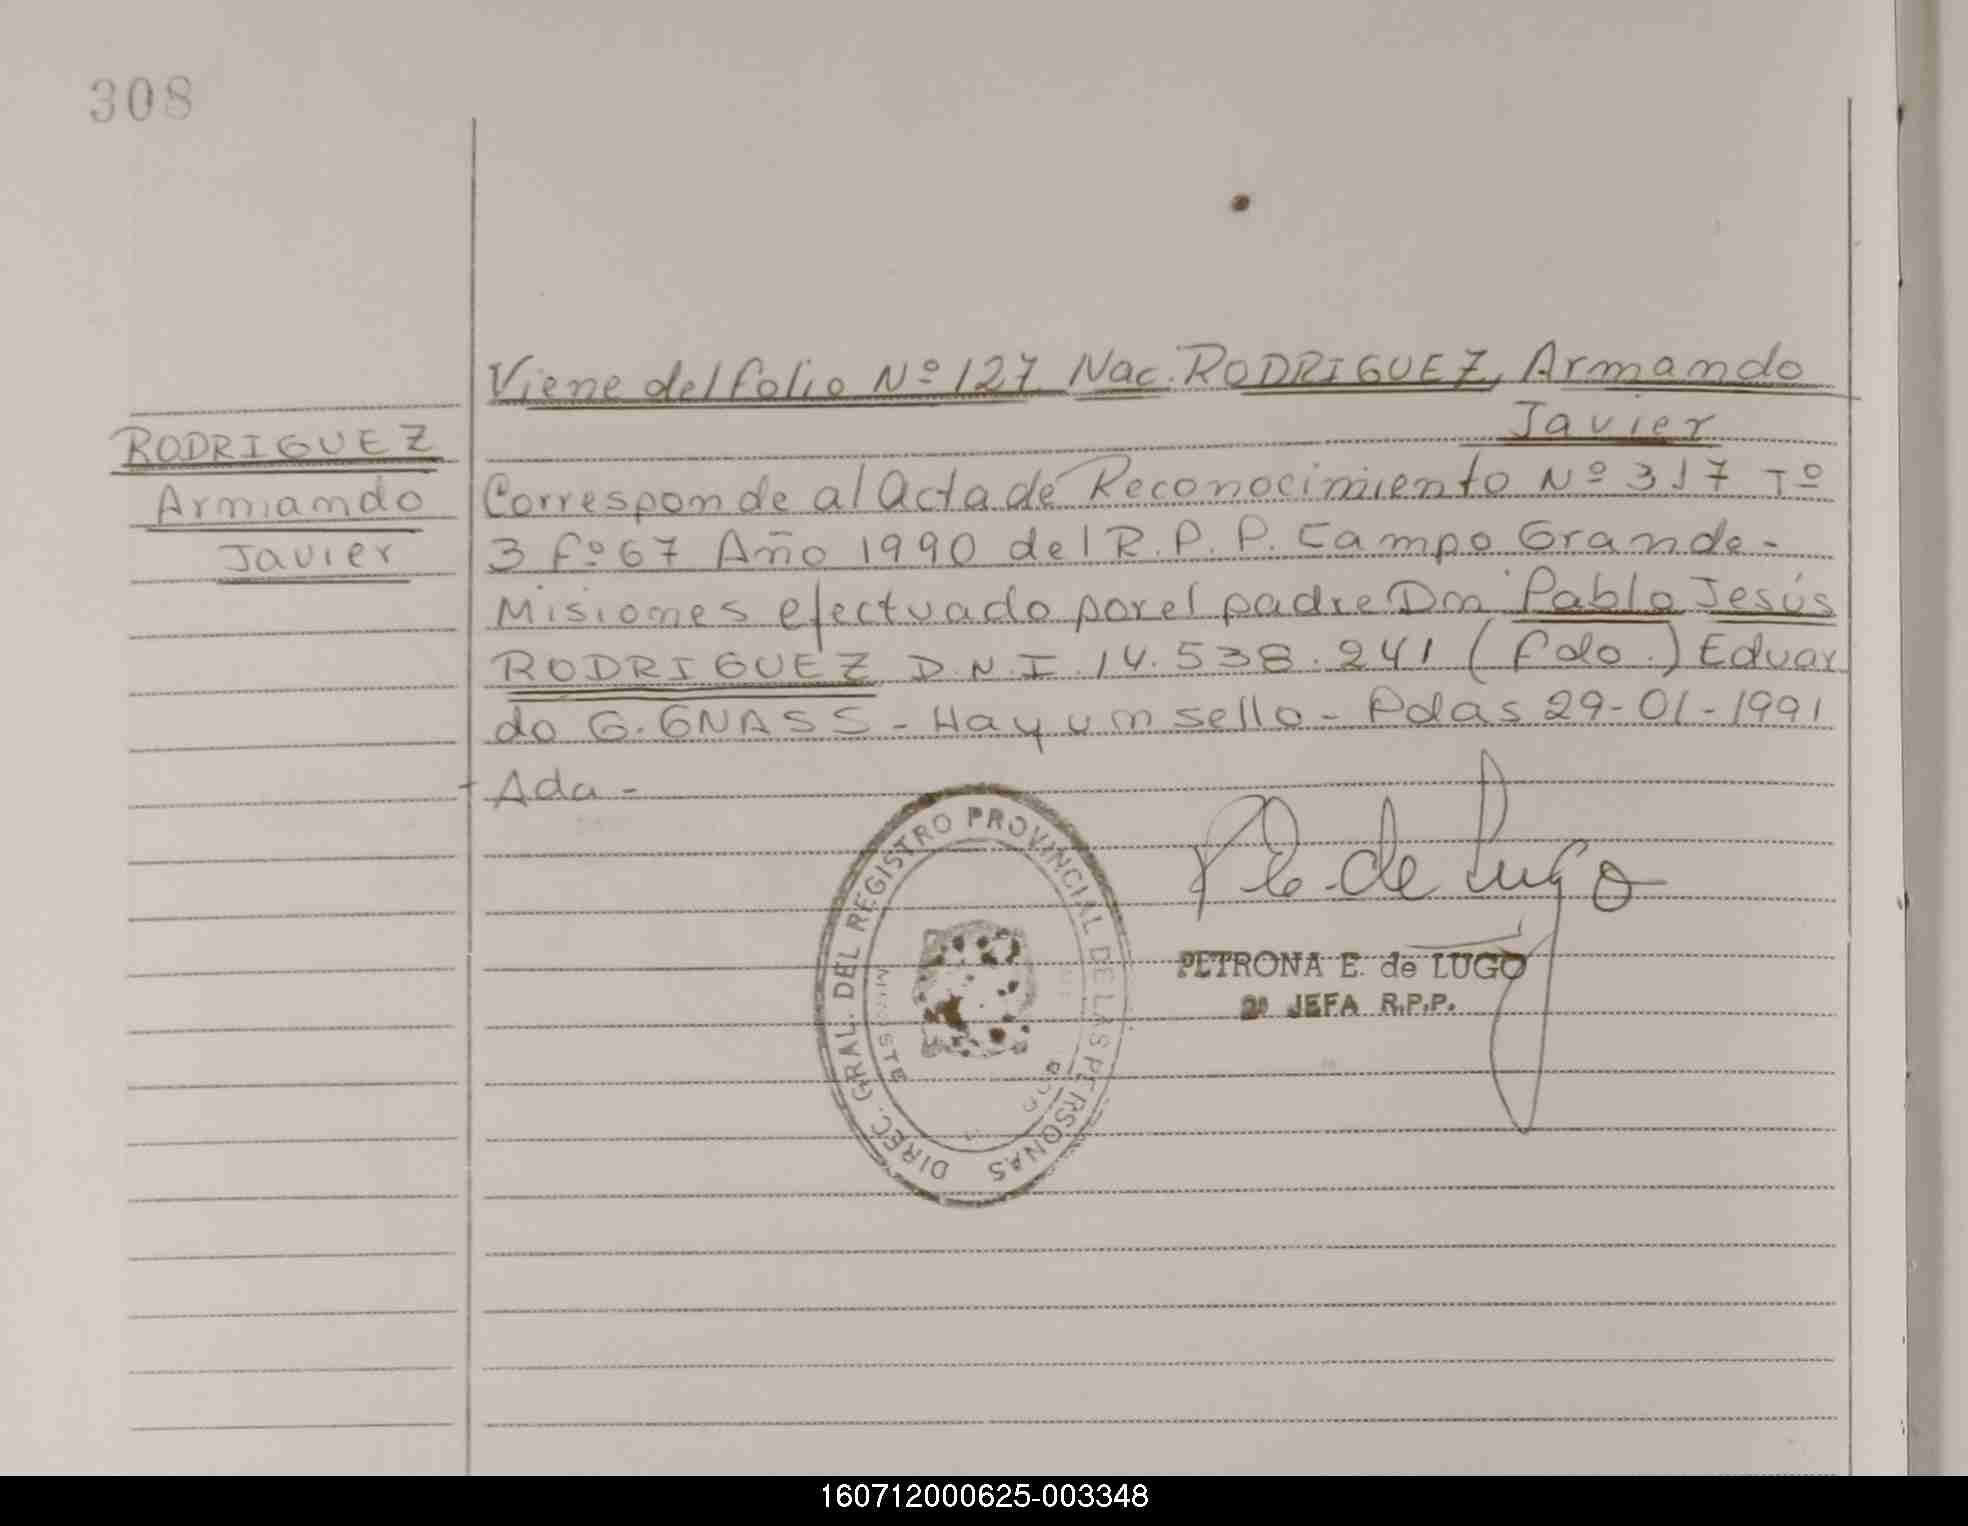 308
Viene del folio Nº 127 Nac. RODRIGUEZ, Armando
Javier
RODRIGUEZ
Armando
Javier
Corresponde al Acta de Reconocimiento Nº 317 Tº
3 fº 67 Año 1990 del R.P.P. Campo Grande-
Misiones efectuado por el padre Dn Pablo Jesús
RODRIGUEZ D.N.I 14.538.241 (fdo.) Eduar
do G. GNASS - Hay un sello - Pdas 29-01-1991
Ada -
DIREC. GRAL. DEL REGISTRO PROVINCIAL DE LAS PERSONAS
P E. de Lugo
PETRONA E. de LUGO
2ª JEFA R.P.P.
160712000625-003348